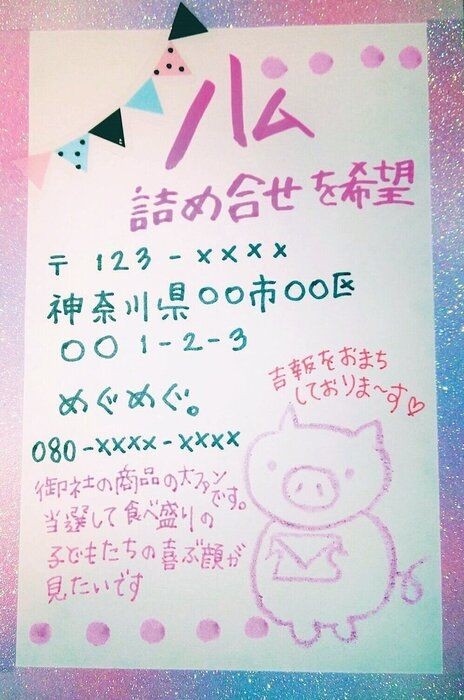 ハム
詰め合せを希望
〒123-xxxx
神奈川県〇〇市〇〇区
〇〇1-2-3
めぐめぐ。
080-xxxx-xxxx
吉報をおまち
しておりま〜す♡
御社の商品の大ファンです。
当選して食べ盛りの
子どもたちの喜ぶ顔が
見たいです